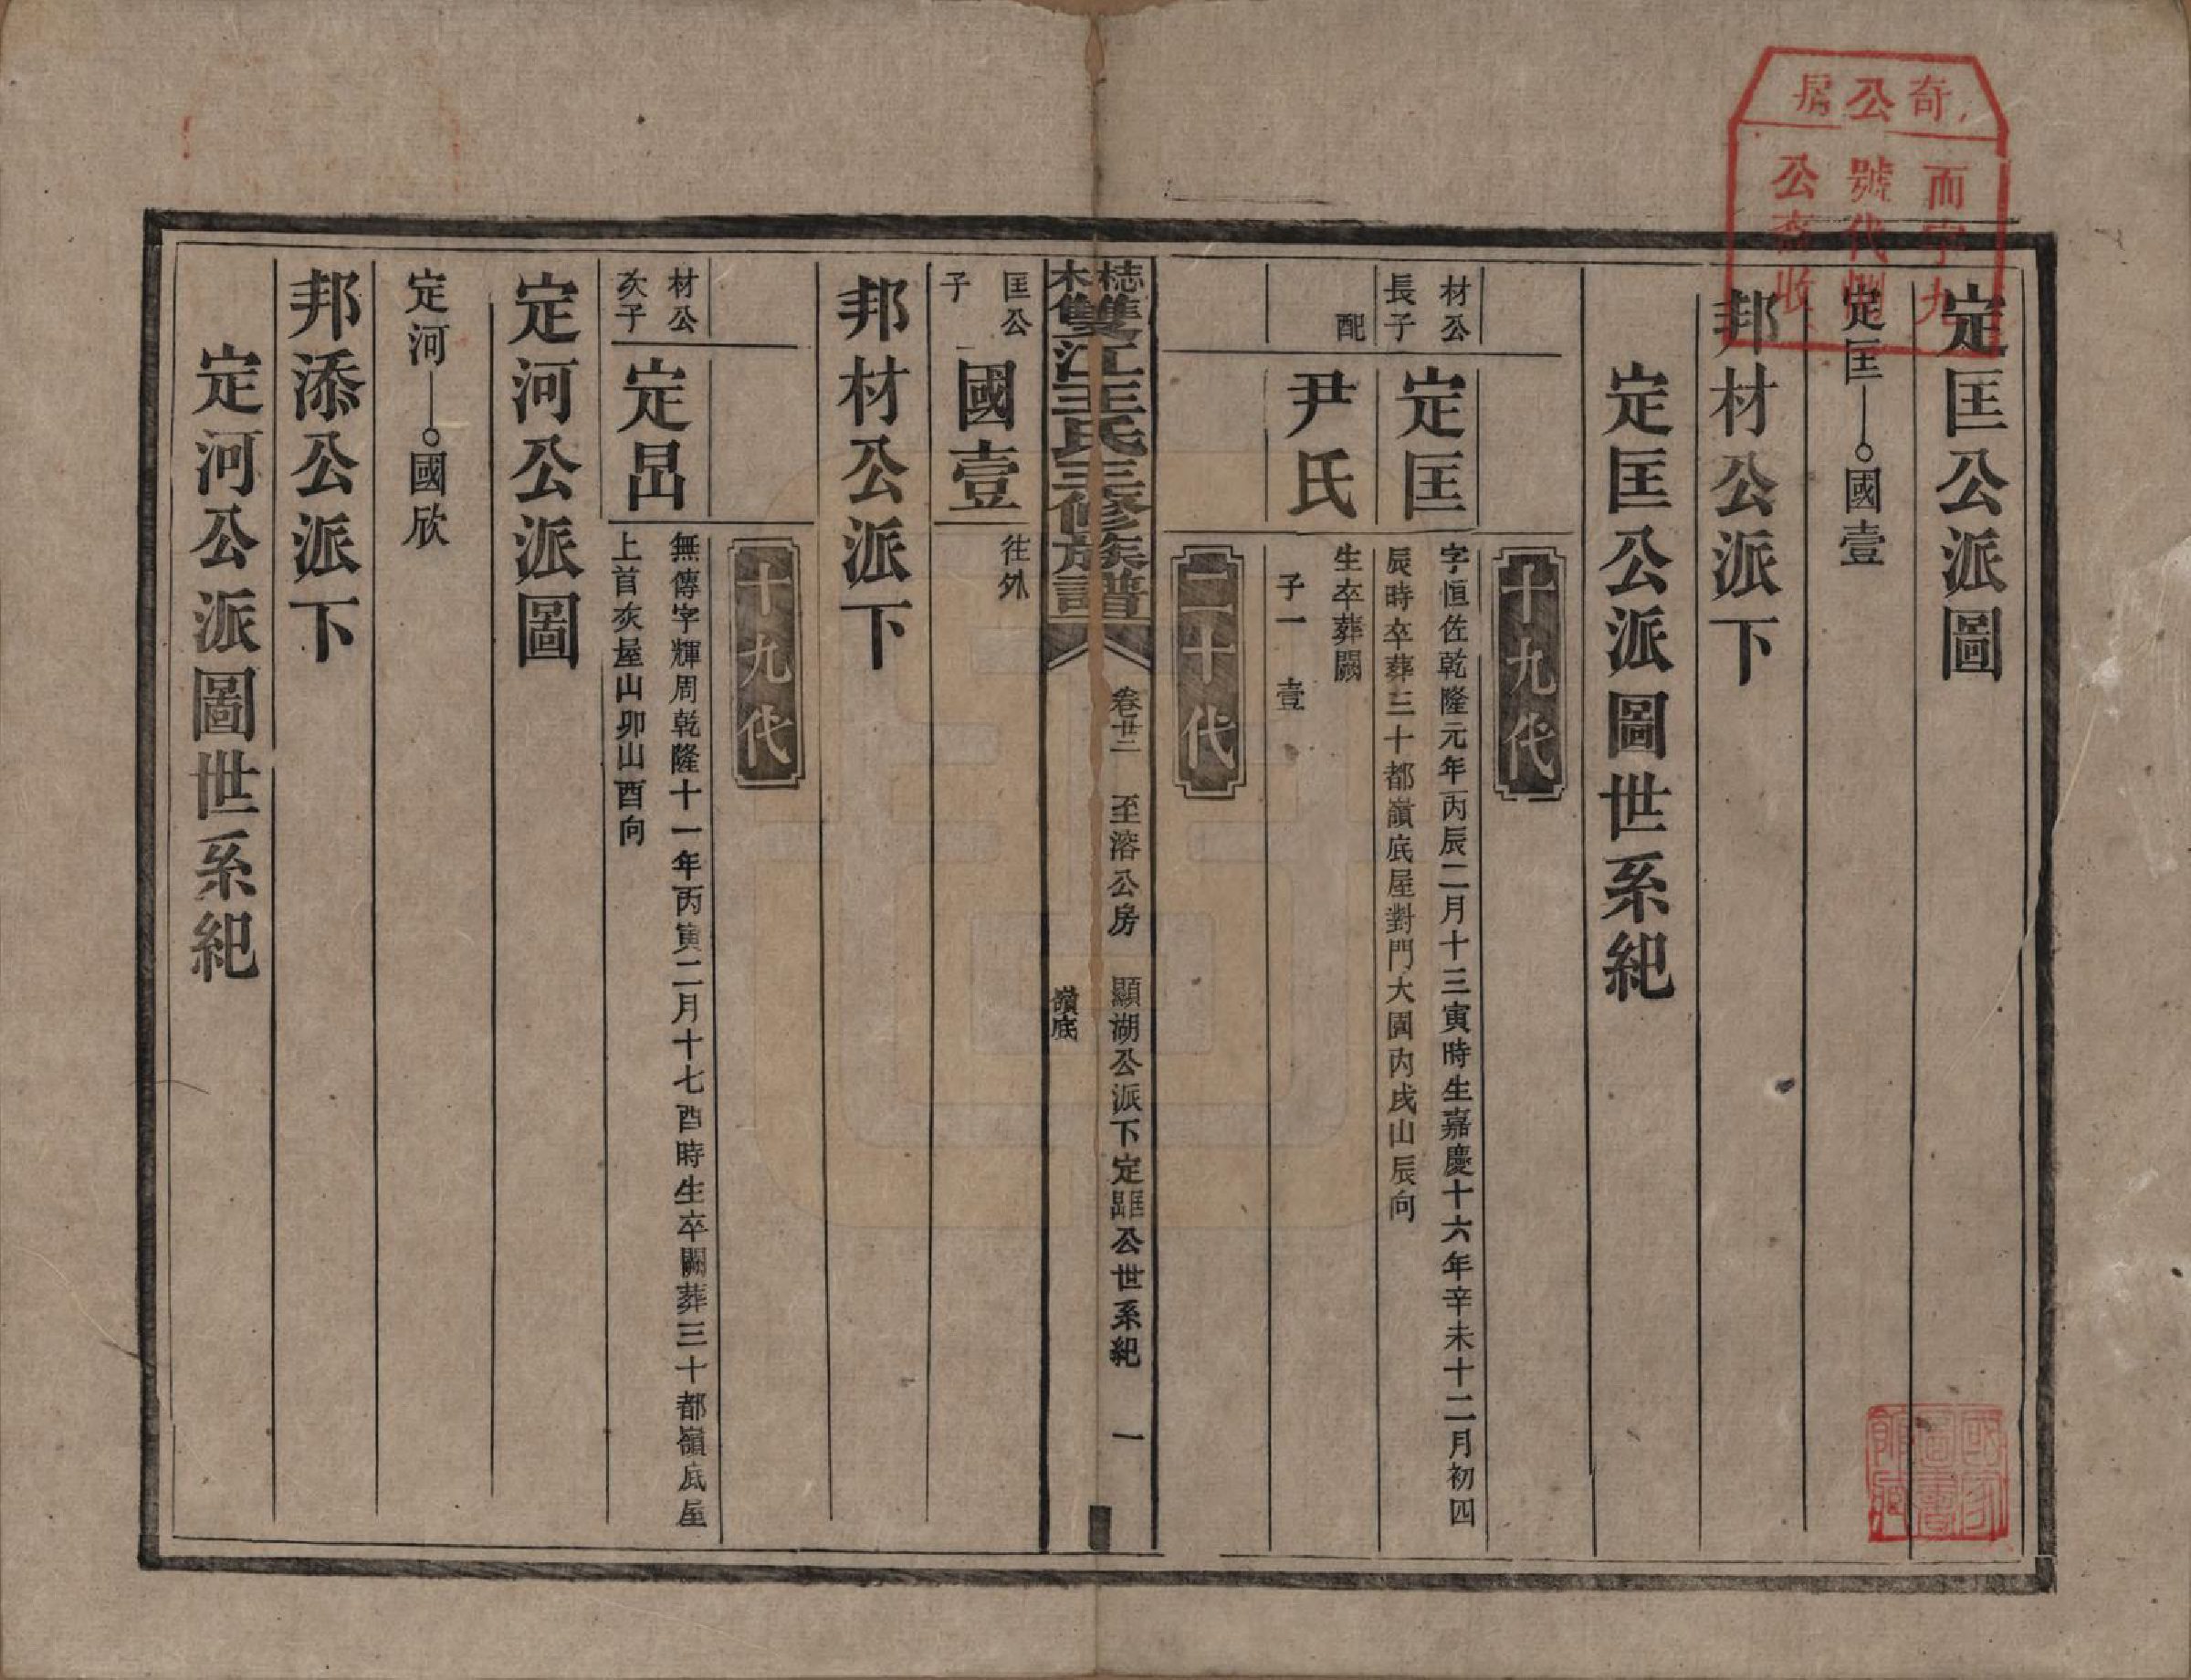 奇公房
而字九
號代
公收
定匡公派圖
定匡——○國壹
邦材公派下
定匡公派圖世系紀
十九代
材公長子
定匡
字恒佐乾隆元年丙辰二月十三寅時生嘉慶十六年辛未十二月初四
辰時卒葬三十都嶺底屋對門大園内戌山辰向
配
尹氏
生卒葬闕
子一 壹
二十代
雙江王氏三修族譜
卷廿二 至溶公房 顯湖公派下定公世系紀 一
嶺底
匡公子
國壹
往外
邦材公派下
十九代
材公次子
定昌
無傳字輝周乾隆十一年丙寅二月十七酉時生卒闕葬三十都嶺底屋
上首灰屋山卯山酉向
定河公派圖
定河——○國欣
邦添公派下
定河公派圖世系紀